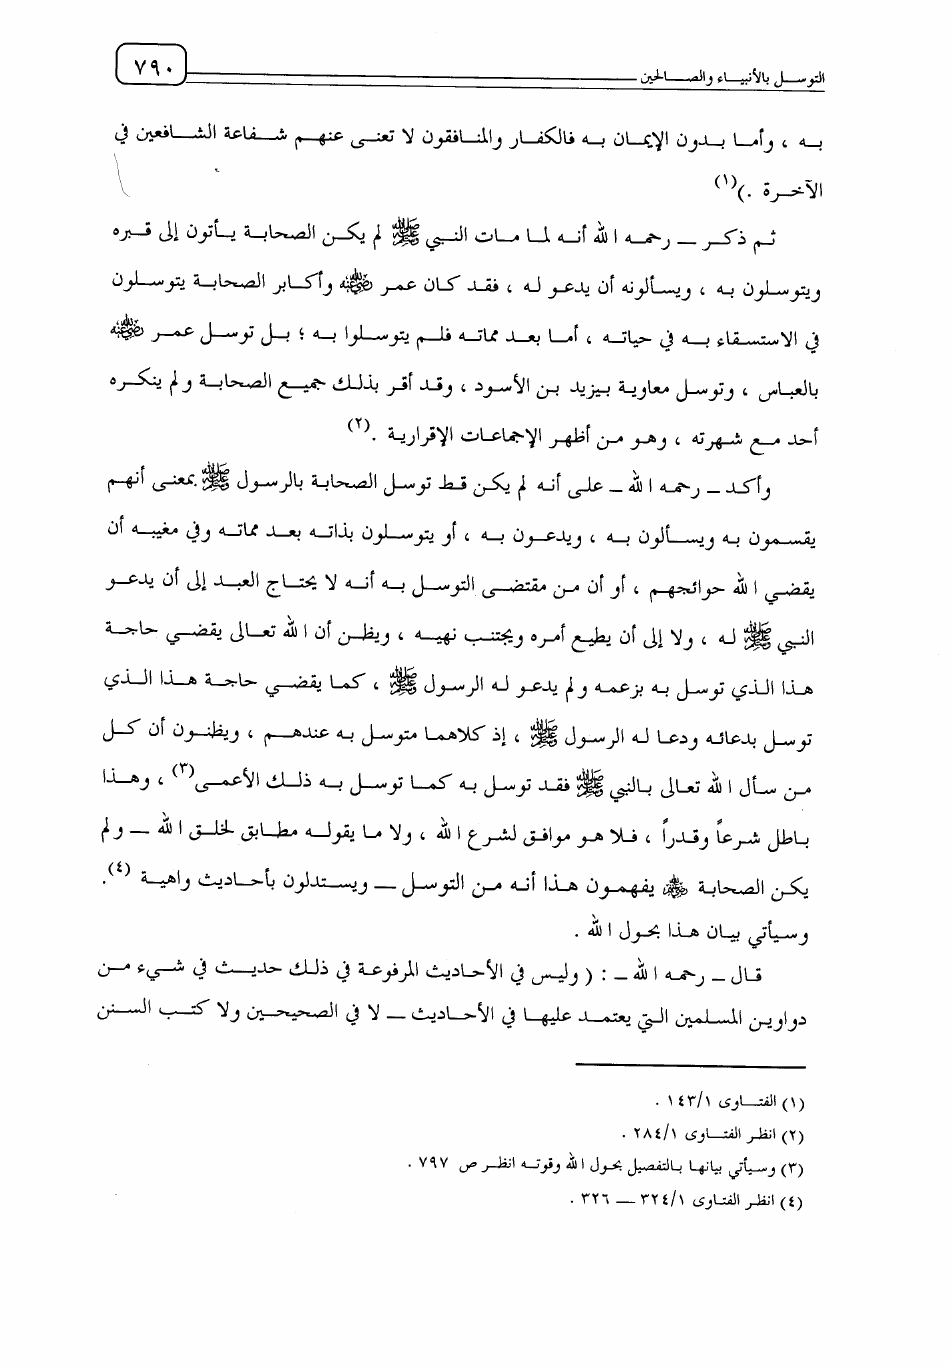 التوسل بالأنبياء والصالحين
٧٩٠
به ، وأما بدون الإيمان به فالكفار والمنافقون لا تعنى عنهم شفاعة الشافعين في
الآخرة .)(١)
ثم ذكر ــ رحمه الله أنه لما مات النبي ﷺ لم يكن الصحابة يأتون إلى قبره
ويتوسلون به ، ويسألونه أن يدعو له ، فقد كان عمر ﵁ وأكابر الصحابة يتوسلون
في الاستسقاء به في حياته ، أما بعد مماته فلم يتوسلوا به ؛ بل توسل عمر ﵁
بالعباس ، وتوسل معاوية بيزيد بن الأسود ، وقد أقر بذلك جميع الصحابة و لم ينكره
أحد مع شهرته ، وهو من أظهر الإجماعات الإقرارية .(٢)
وأكد ــ رحمه الله ــ على أنه لم يكن قط توسل الصحابة بالرسول ﷺ بمعنى أنهم
يقسمون به ويسألون به ، ويدعون به ، أو يتوسلون بذاته بعد مماته وفي مغيبه أن
يقضي الله حوائجهم ، أو أن من مقتضى التوسل به أنه لا يحتاج العبد إلى أن يدعو
النبي ﷺ له ، ولا إلى أن يطيع أمره ويجتنب نهيه ، ويظن أن الله تعالى يقضي حاجة
هذا الذي توسل به بزعمه و لم يدعو له الرسول ﷺ ، كما يقضي حاجة هذا الذي
توسل بدعائه ودعا له الرسول ﷺ ، إذ كلاهما متوسل به عندهم ، ويظنون أن كل
من سأل الله تعالى بالنبي ﷺ فقد توسل به كما توسل به ذلك الأعمى(٣) ، وهذا
باطل شرعاً وقدراً ، فلا هو موافق لشرع الله ، ولا ما يقوله مطابق لخلق الله ــ و لم
يكن الصحابة ﵃ يفهمون هذا أنه من التوسل ــ ويستدلون بأحاديث واهية (٤).
وسيأتي بيان هذا بحول الله .
قال ــ رحمه الله ــ : ( وليس في الأحاديث المرفوعة في ذلك حديث في شيء من
دواوين المسلمين التي يعتمد عليها في الأحاديث ــ لا في الصحيحين ولا كتب السنن
(١) الفتاوى ١٤٣/١ .
(٢) انظر الفتاوى ٢٨٤/١ .
(٣) وسيأتي بيانها بالتفصيل بحول الله وقوته انظر ص ٧٩٧ .
(٤) انظر الفتاوى ٣٢٤/١ ــ ٣٢٦ .